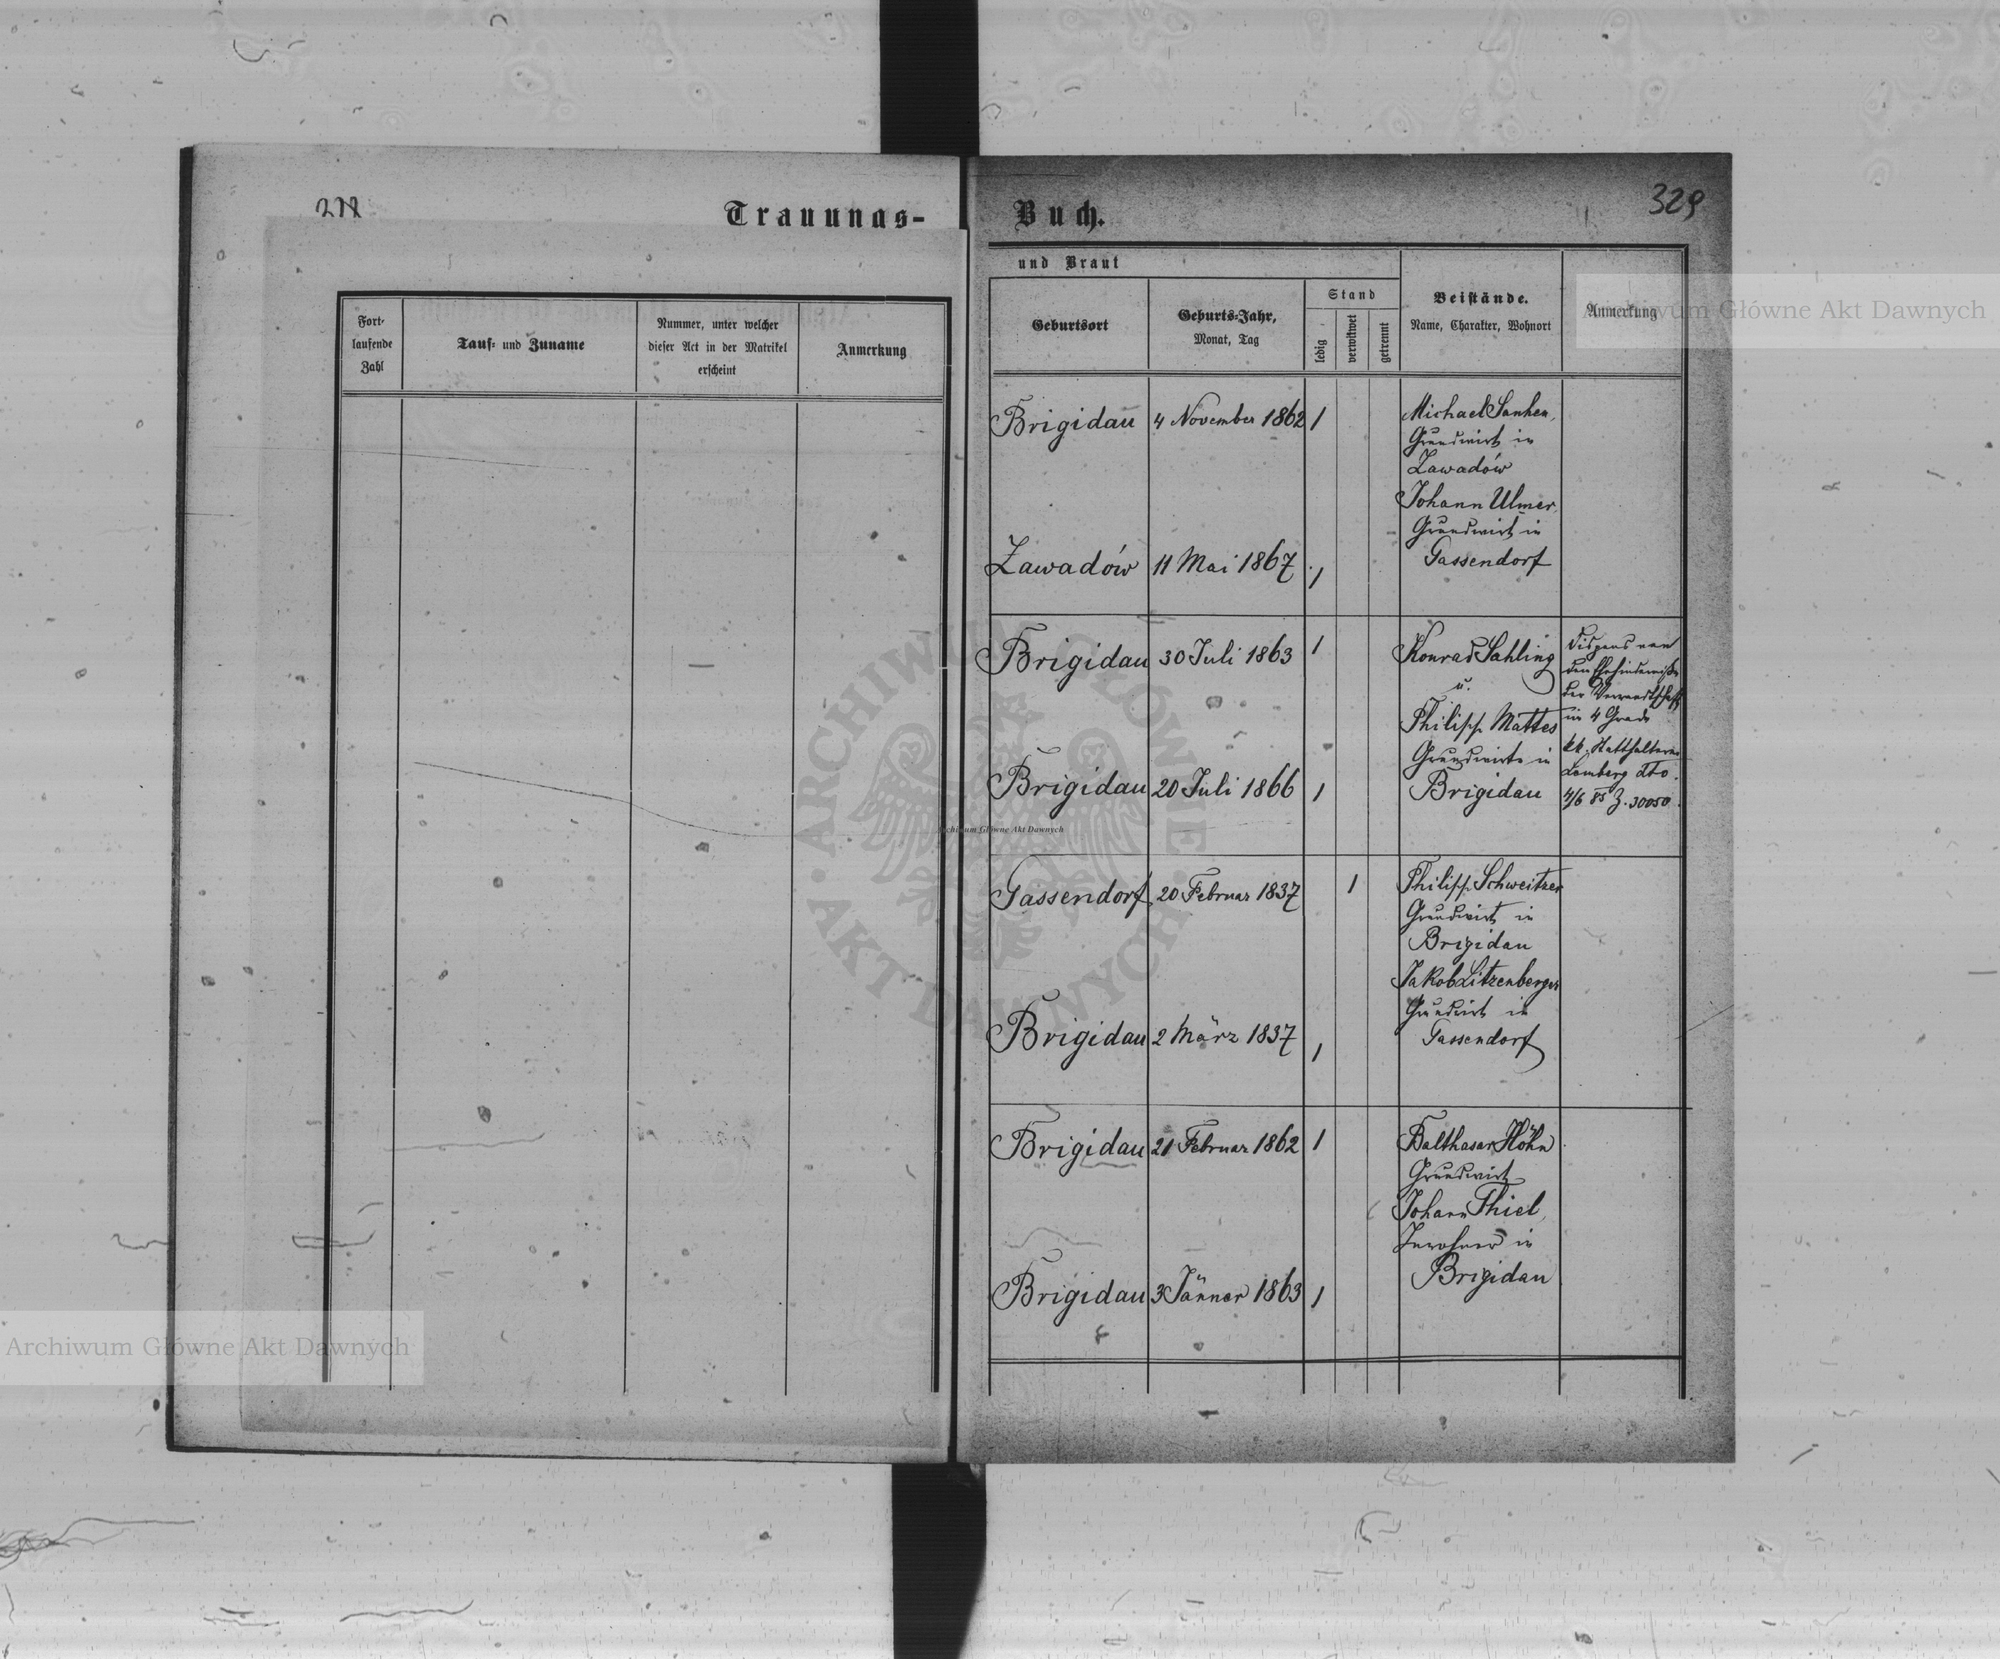 212
Trauungs-
Fort-
laufende
Zahl
Tauf- und Zuname
Nummer, unter welcher
dieser Act in der Matrikel
erscheint
Anmerkung
Buch.
329
und Braut
Geburtsort
Geburts-Jahr,
Monat, Tag
Stand
ledig
verwitwet
getrennt
Beistände.
Name, Charakter, Wohnort
Anmerkung
Brigidau 4 November 1862 1
Michael
Grundwirt in
Zawadów
Johann Ulmer,
Grundwirt in
Gassendorf
Zawadów 11 Mai 1867 1
Brigidau 30 Juli 1863 1
Konrad Sahling
u.
Philipp Mattes
Grundwirte in
Brigidau
Dispens von
den Ehehindernisse
der Verwandtschaft
im 4 Grade
kk. Statthalterei
Lemberg dto.
4/6 85 Z. 30050.
Brigidau 20 Juli 1866 1
Gassendorf 20 Februar 1837 1
Philipp Schweitzer
Grundwirt in
Brigidau
Jakob Litzenberger
Grundwirt in
Gassendorf
Brigidau 2 März 1837 1
Brigidau 21 Februar 1862 1
Balthasar Höhn
Grundwirt
Johann Thiel,
Inwohner in
Brigidau
Brigidau 3 Jänner 1863 1
Archiwum Główne Akt Dawnych
ARCHIWUM GŁÓWNE • AKT DAWNYCH •
Archiwum Główne Akt Dawnych
Archiwum Główne Akt Dawnych